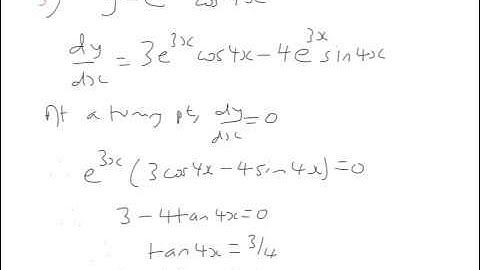 dy/dx = 3e^{3x} cos4x - 4e^{3x} sin4x
At a turning pt, dy/dx = 0
e^{3x} (3cos4x - 4sin4x) = 0
3 - 4tan4x = 0
tan4x = 3/4